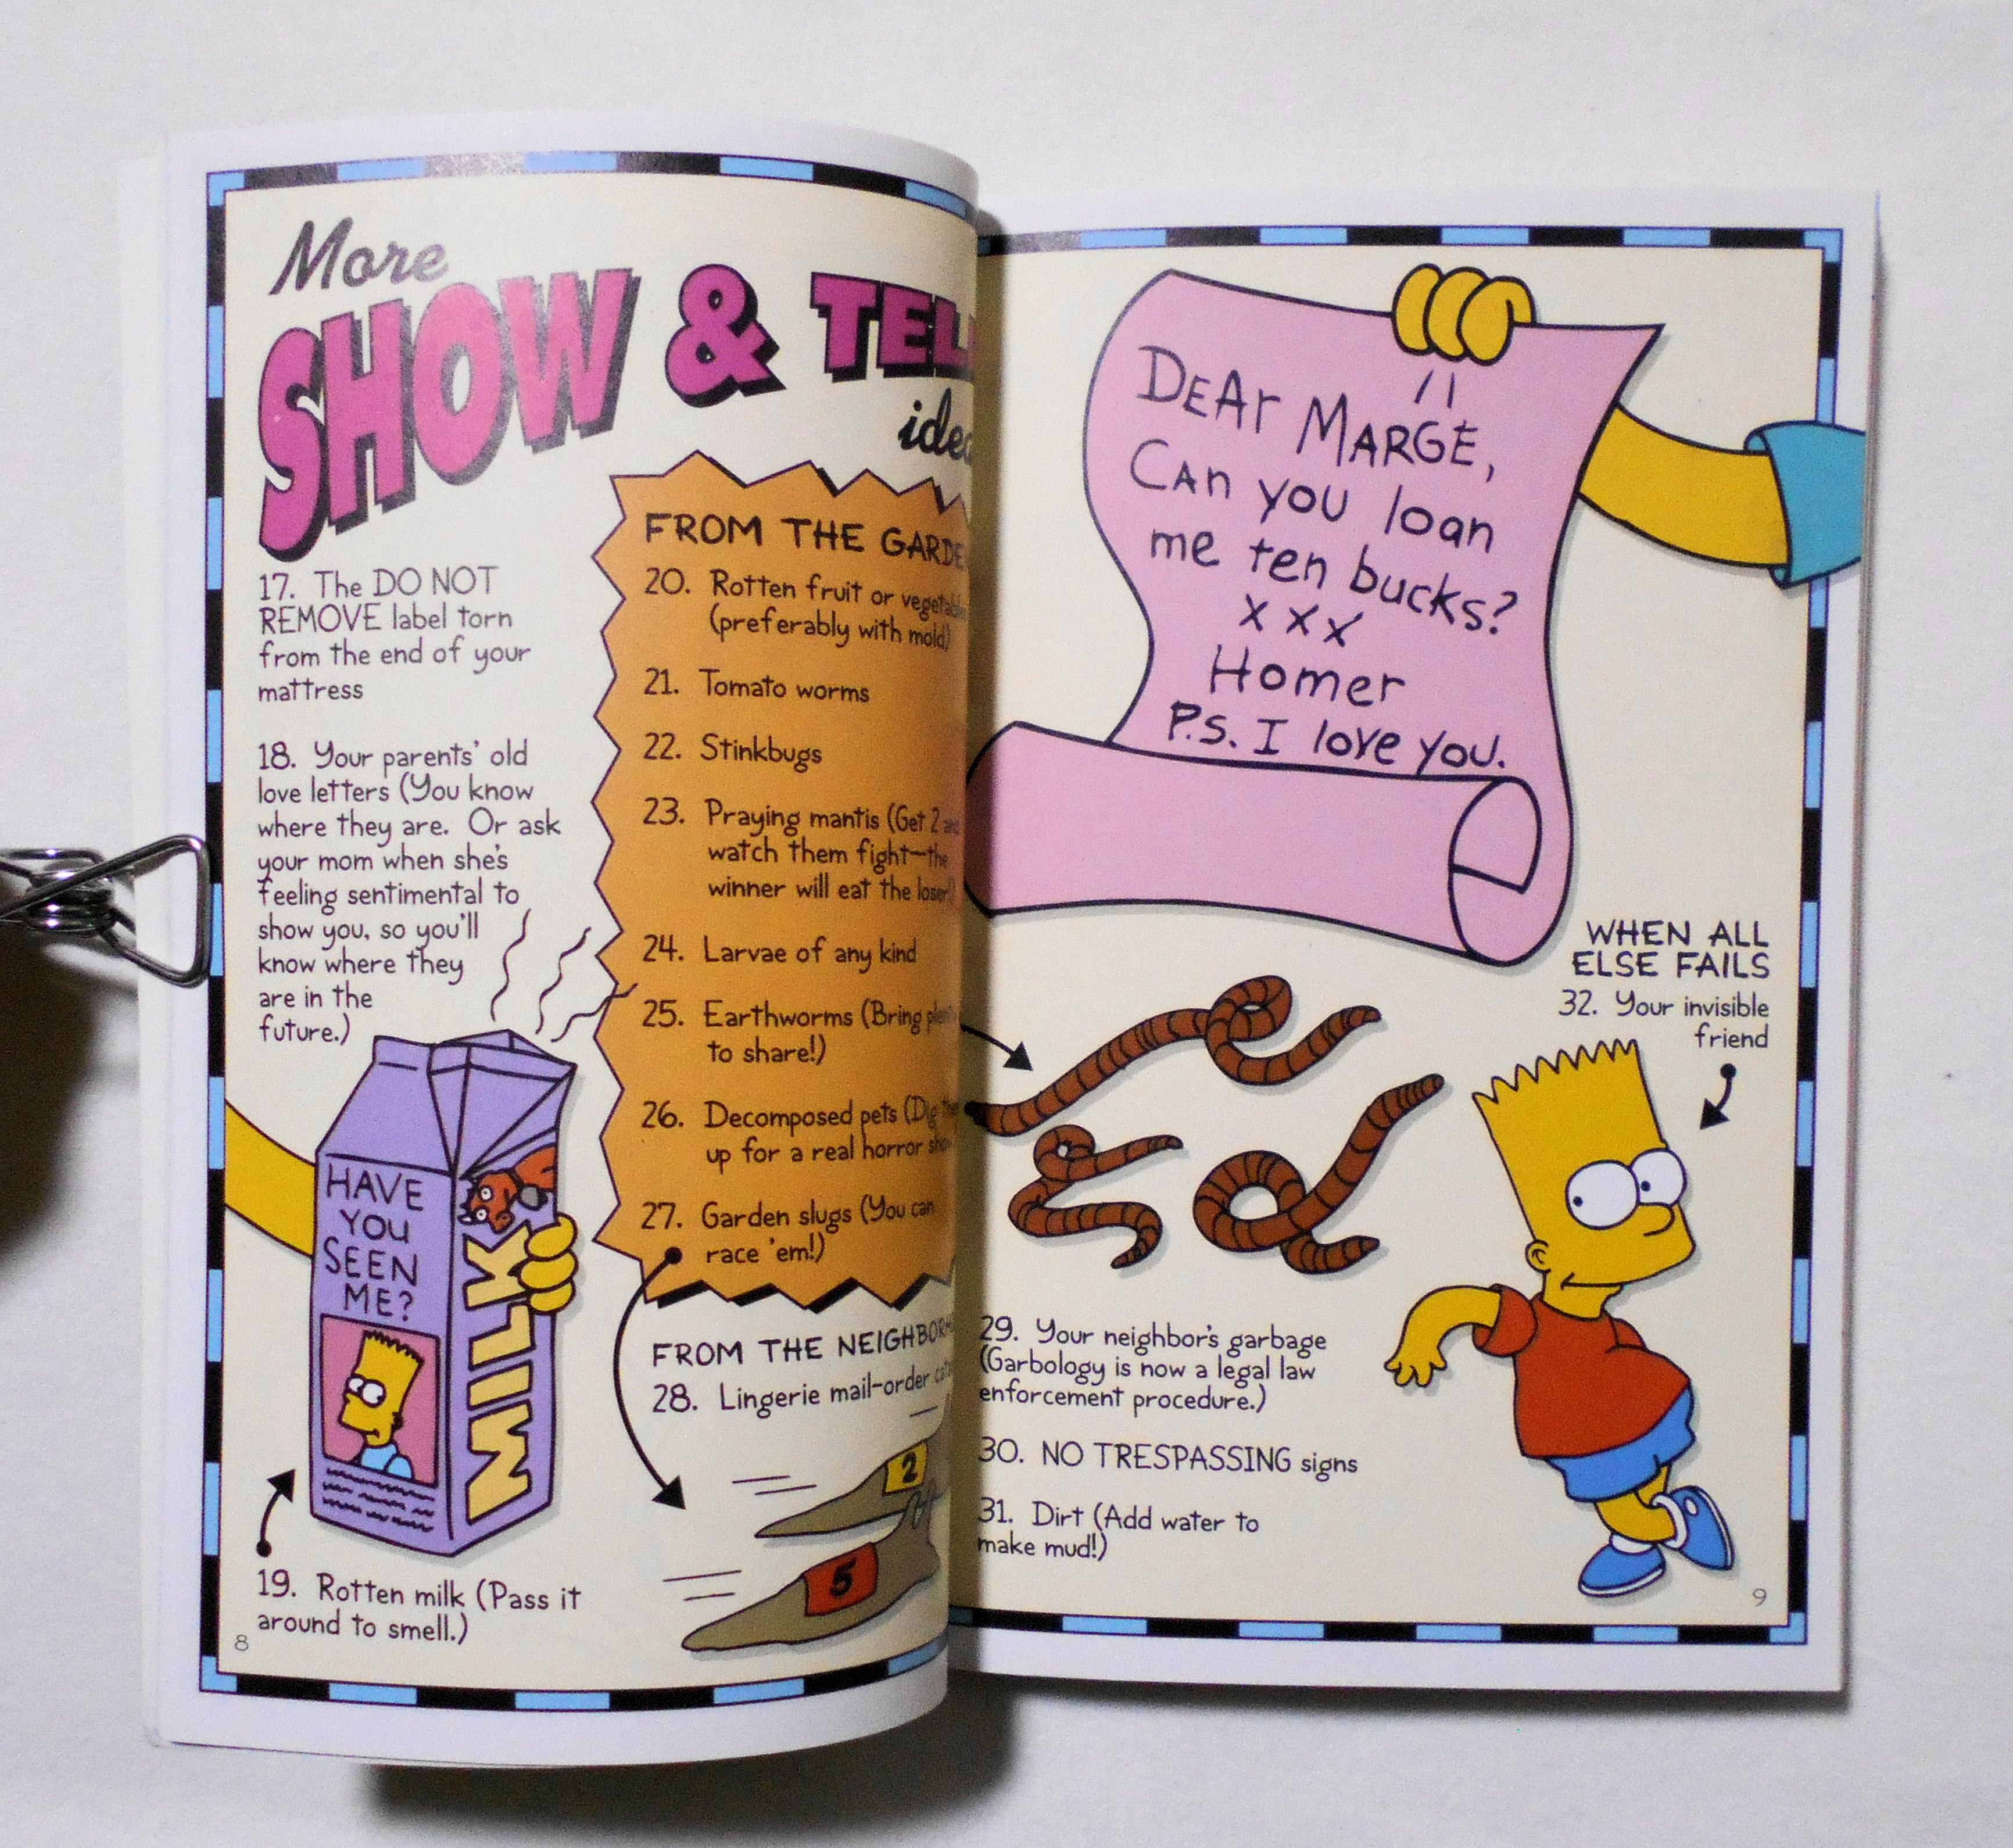 More
SHOW & TELL
17. The DO NOT
REMOVE label torn
from the end of your
mattress
18. Your parents' old
love letters (You know
where they are. Or ask
your mom when she's
feeling sentimental to
show you, so you'll
know where they
are in the
future.)
HAVE
YOU
SEEN
ME?
MILK
19. Rotten milk (Pass it
around to smell.)
8
FROM THE GARDEN
20. Rotten fruit or vegetables
(preferably with mold)
21. Tomato worms
22. Stinkbugs
23. Praying mantis (Get 2 and
watch them fight—the
winner will eat the loser!)
24. Larvae of any kind
25. Earthworms (Bring plenty
to share!)
26. Decomposed pets (Dig them
up for a real horror show
27. Garden slugs (You can
race 'em!)
FROM THE
28. Lingerie mail-order
2
5
DEAr MARGE,
CAn you loan
me ten bucks?
x x x
Homer
P.S. I love you.
29. Your neighbor's garbage
(Garbology is now a legal law
enforcement procedure.)
30. NO TRESPASSING signs
31. Dirt (Add water to
make mud!)
WHEN ALL
ELSE FAILS
32. Your invisible
friend
9